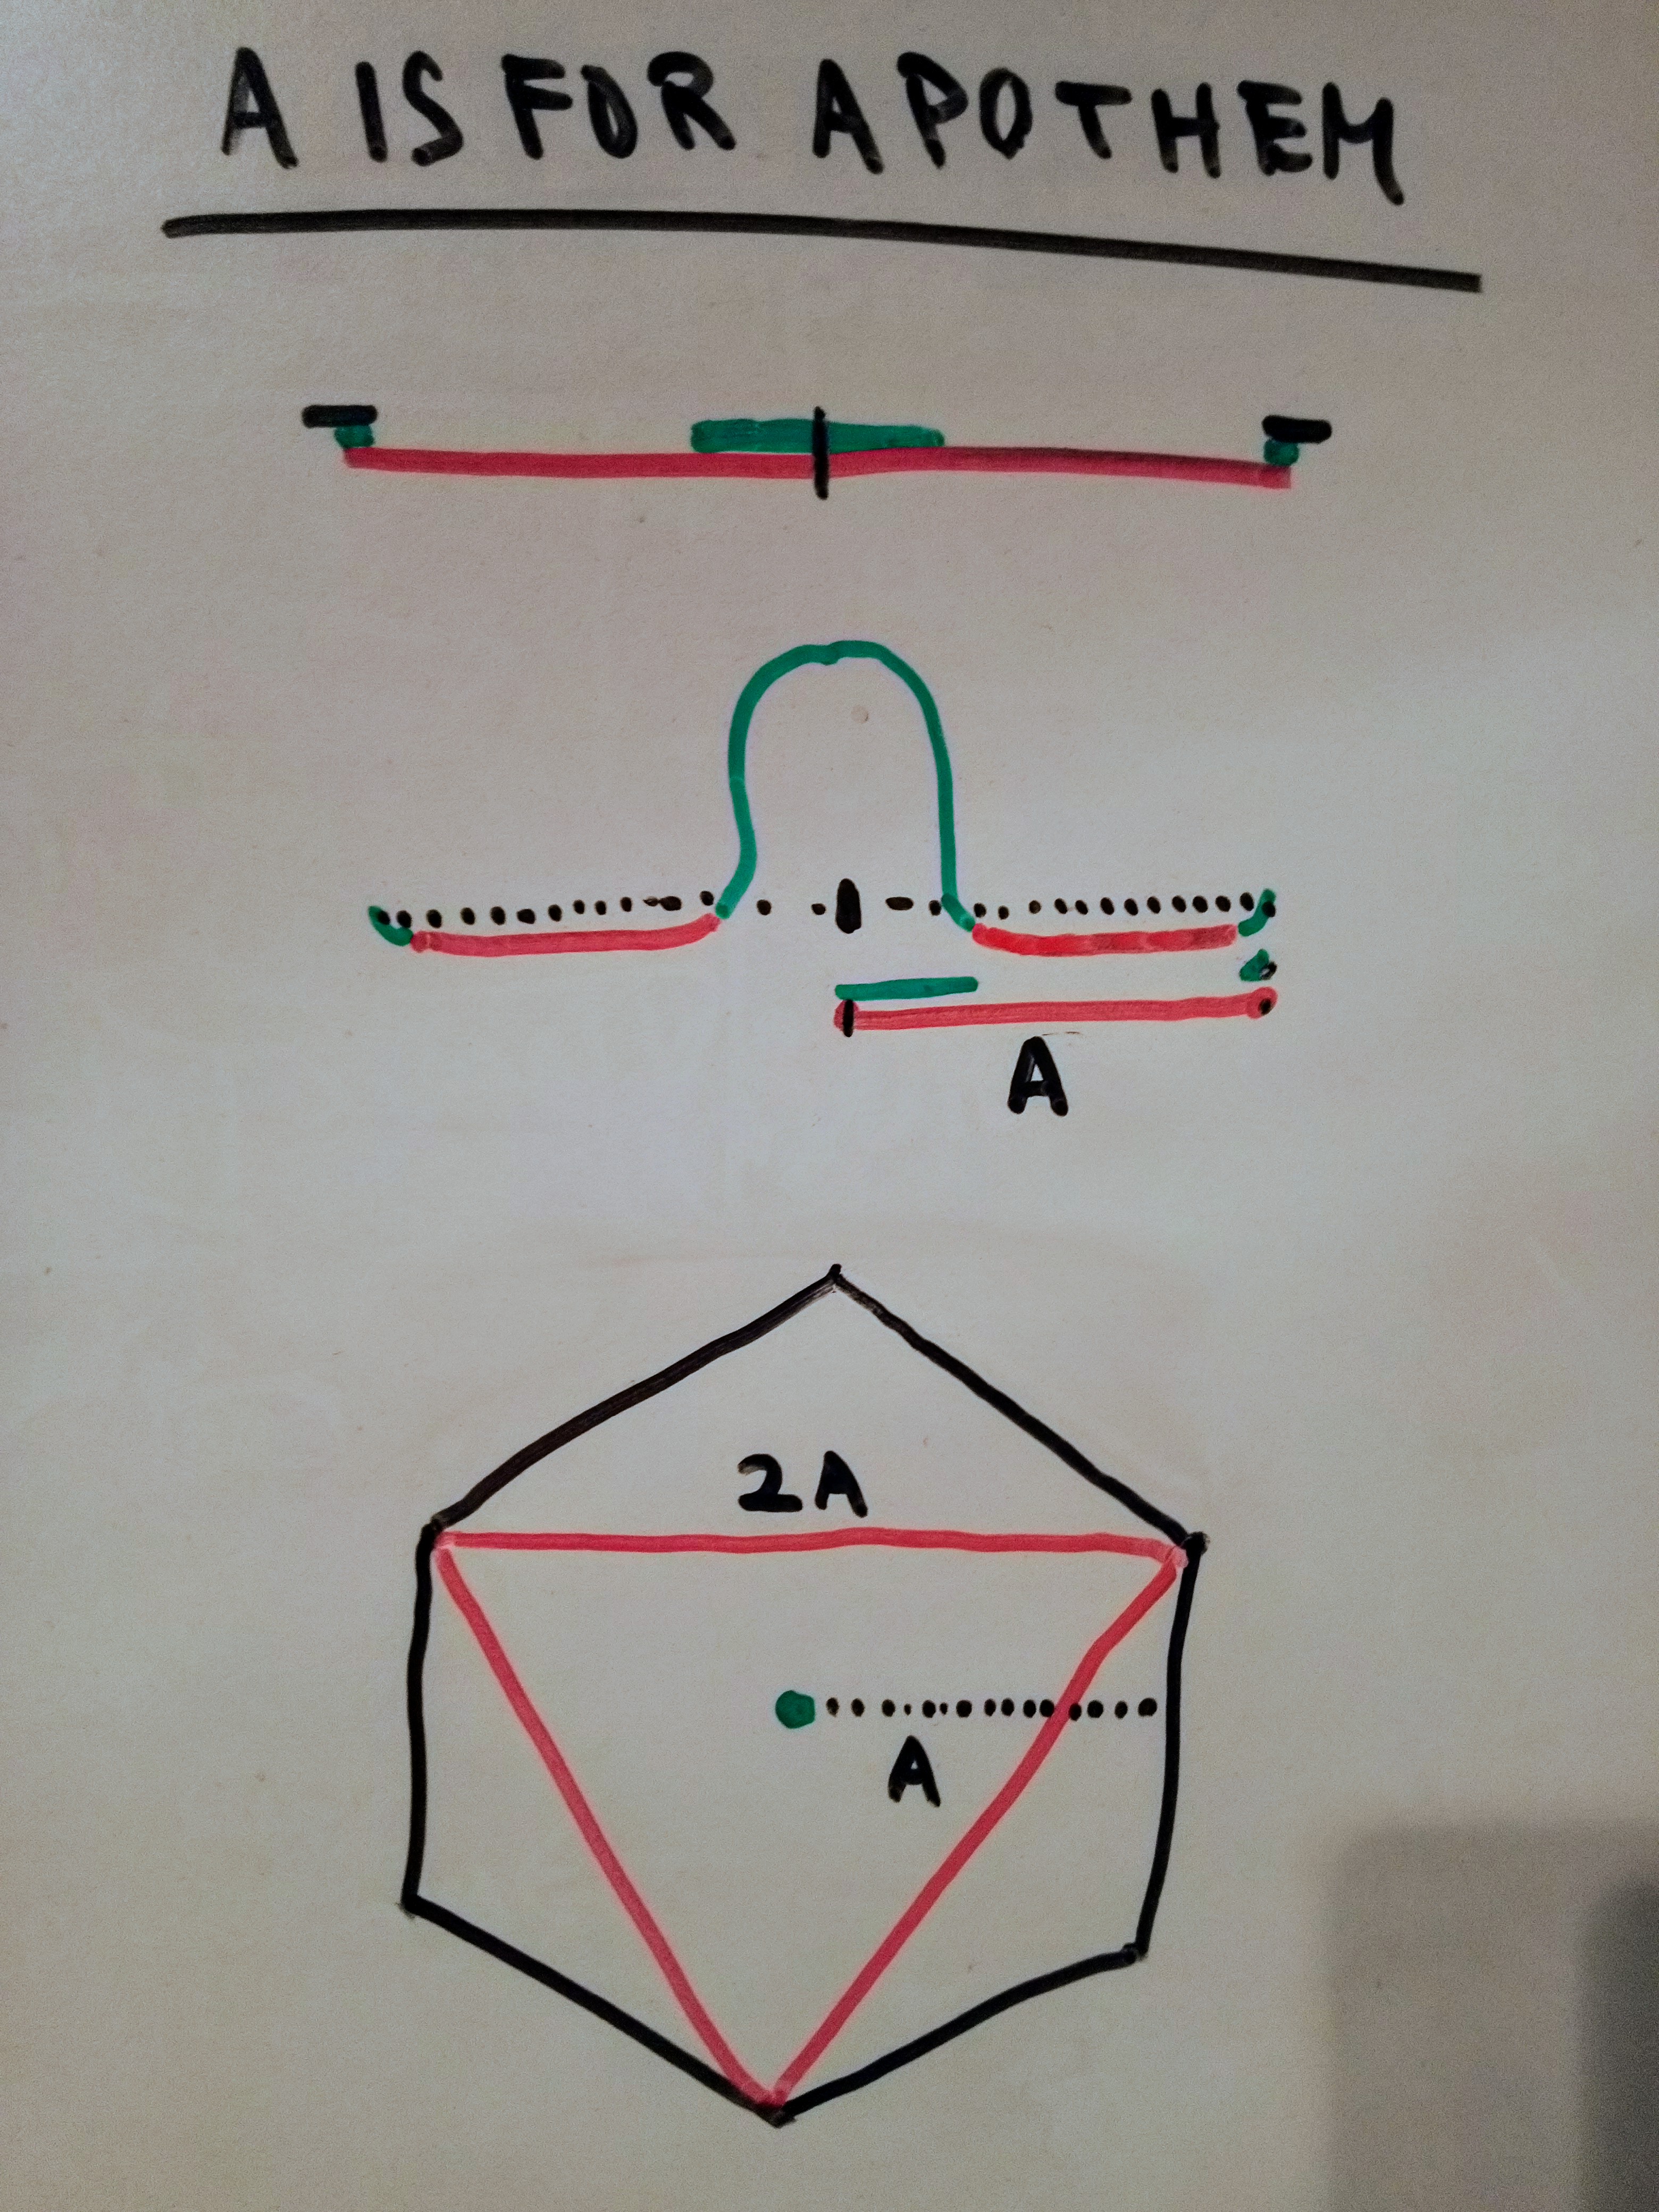 A IS FOR APOTHEM
A
2A
A